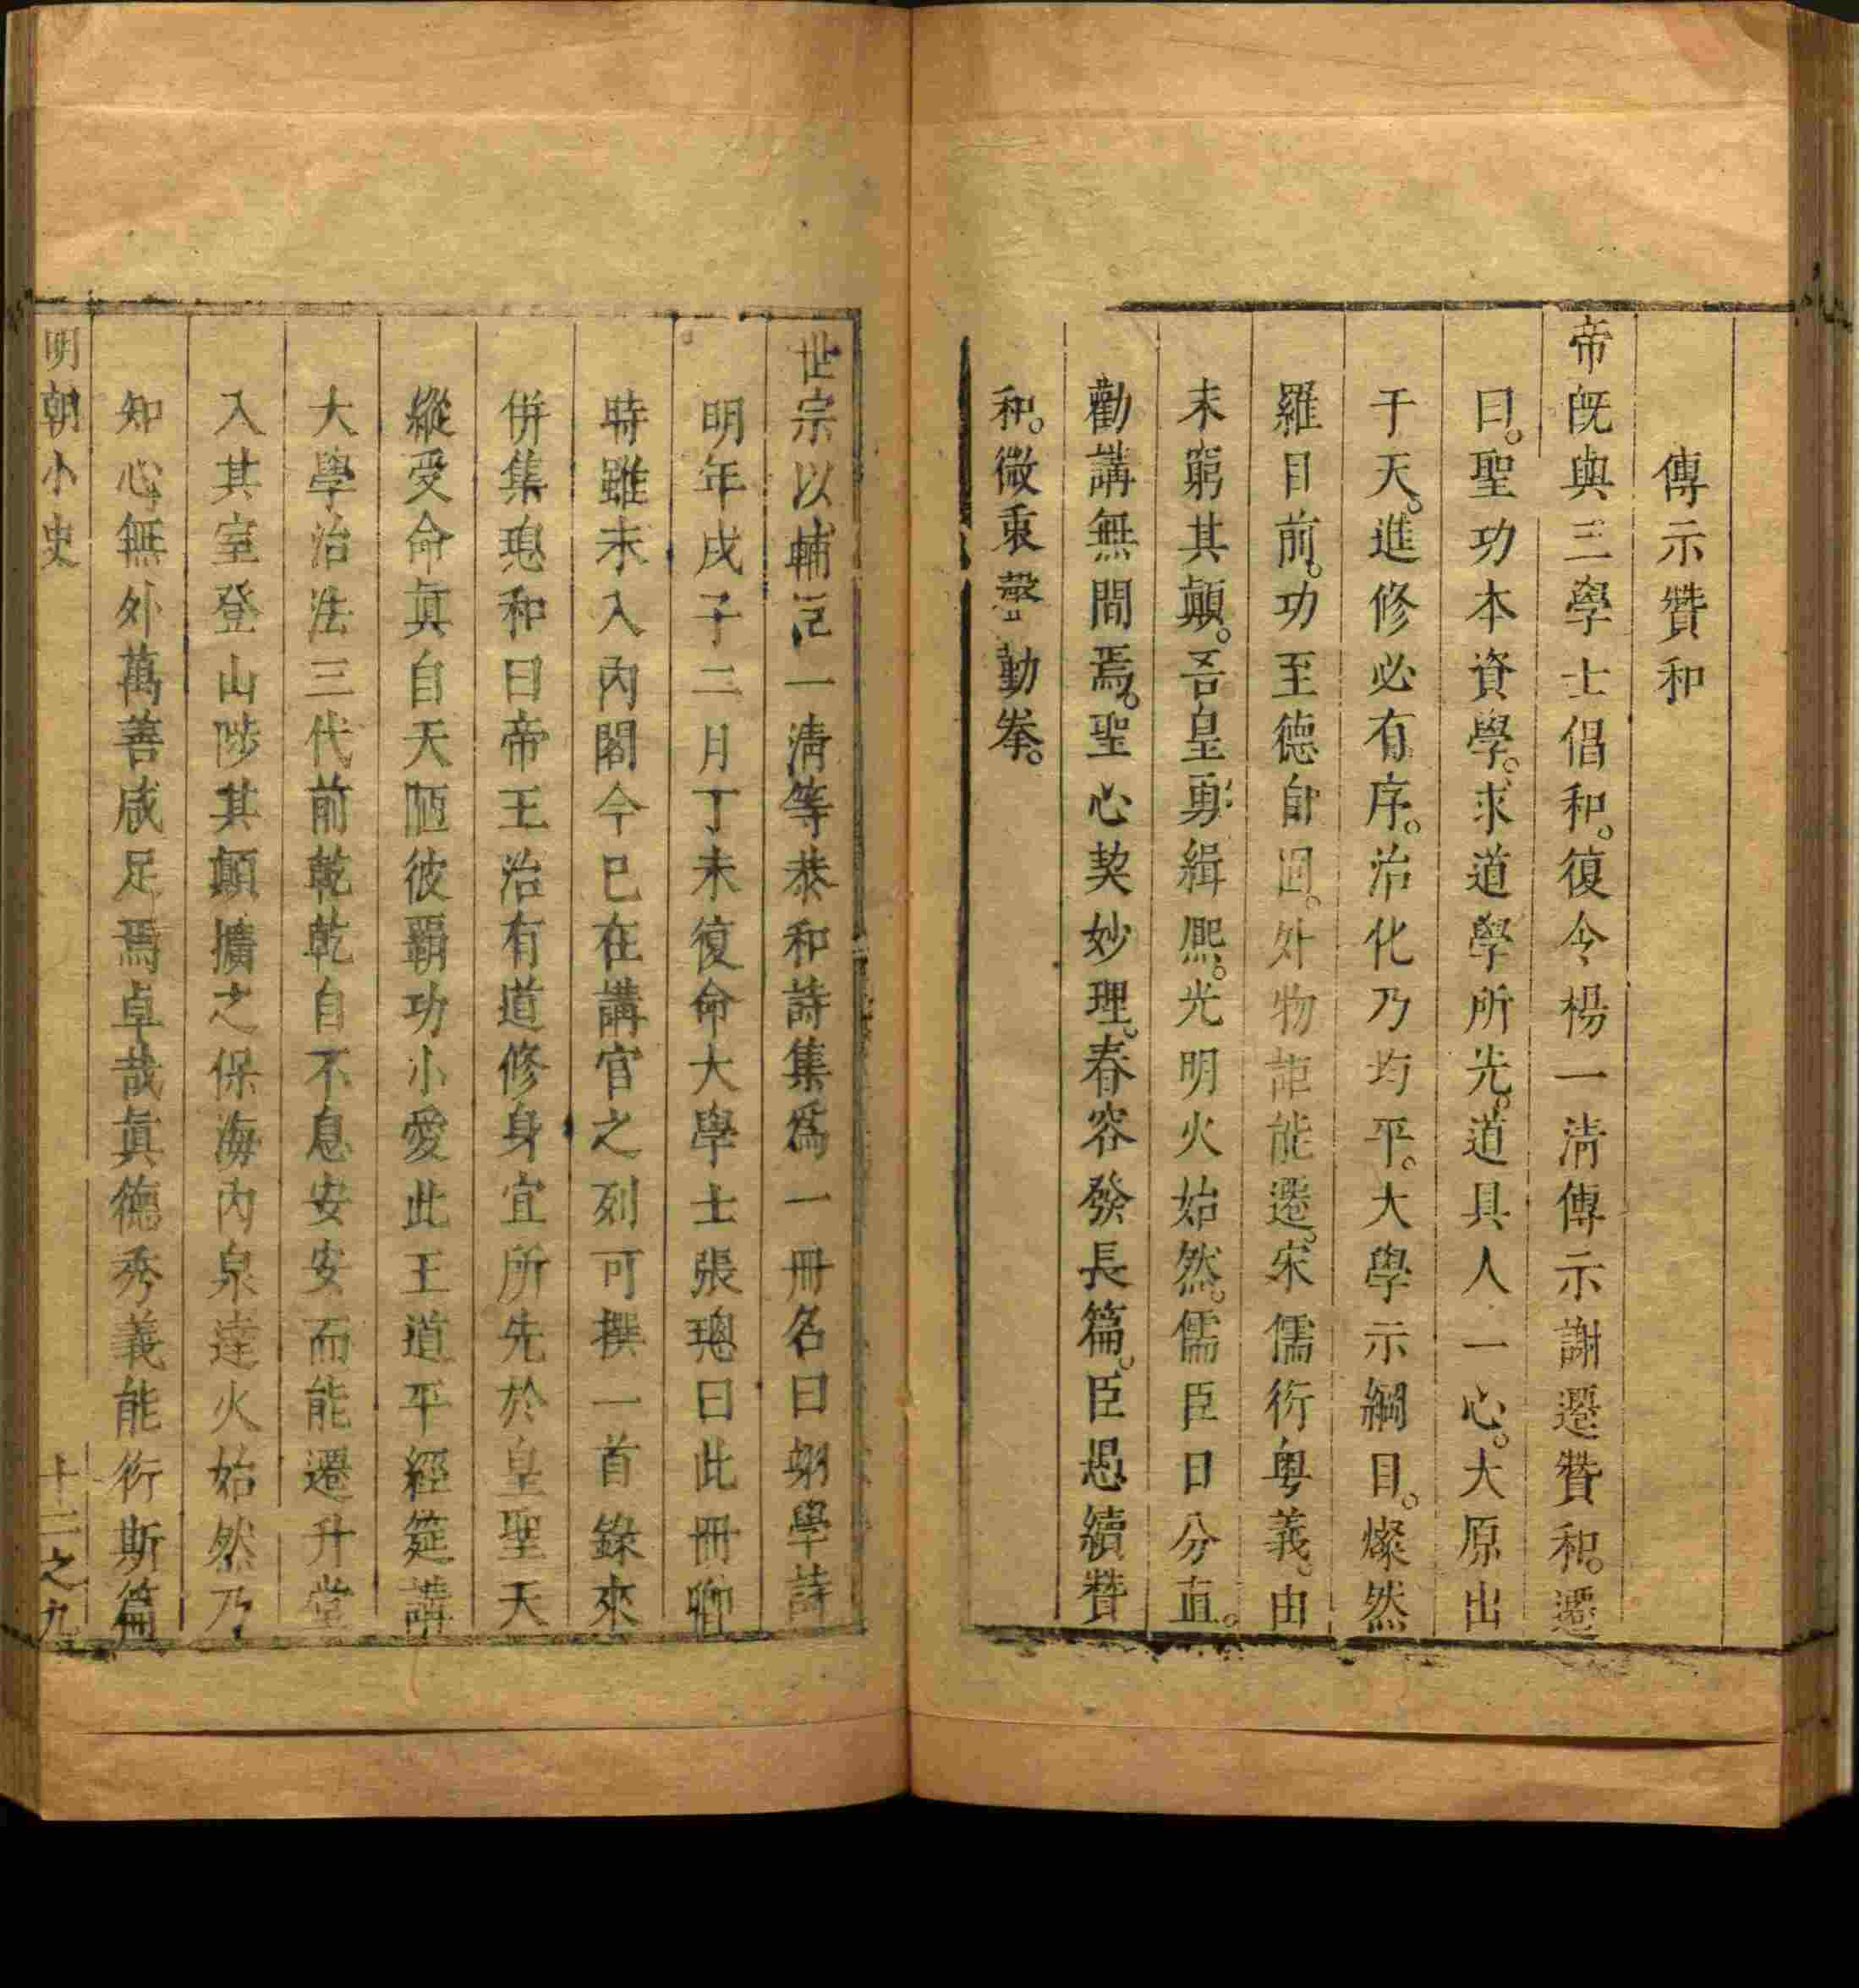 傳示贊和
帝既與三學士倡和。復令楊一淸傳示謝遷贊和。遷
曰。聖功本資學。求道學所光。道具人一心。大原出
于天。進修必有序。治化乃均平。大學示綱目。燦然
羅目前。功至德自固。外物詎能遷。宋儒衍粤義。由
末窮其顚。吾皇勇緝熈。光明火始然。儒臣日分直。
勸講無間焉。聖心契妙理。春容發長篇。臣愚續贊
和。微衷罄勤拳。
世宗以輔臣一淸等恭和詩集爲一冊名曰翊學詩
明年戊子二月丁未復命大學士張璁曰此冊卿
時雖未入內閣今已在講官之列可撰一首錄來
併集璁和曰帝王治有道修身宜所先於皇聖天
縱受命眞自天陋彼覇功小愛此王道平經筵講
大學治法三代前乾乾自不息安安而能遷升堂
入其室登山陟其顚擴之保海內泉達火始然乃
知心無外萬善咸足焉卓哉眞德秀義能衍斯篇
明朝小史
十二之九